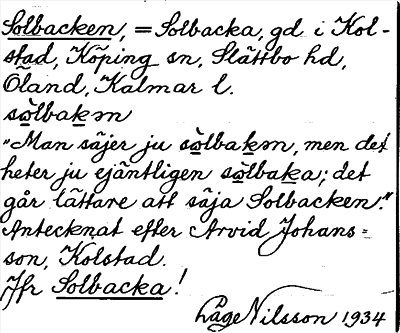 Solbacken, = Solbacka, gd i Kol-
stad, Köping sn, Slättbo hd,
Öland, Kalmar l.
sòlbakən
"Man säjer ju sòlbakən, men det
heter ju ejäntligen sòlbaka; det
går lättare att säja Solbacken."
Antecknat efter Arvid Johans=
son, Kolstad.
Jfr Solbacka!
Låge Nilsson 1934